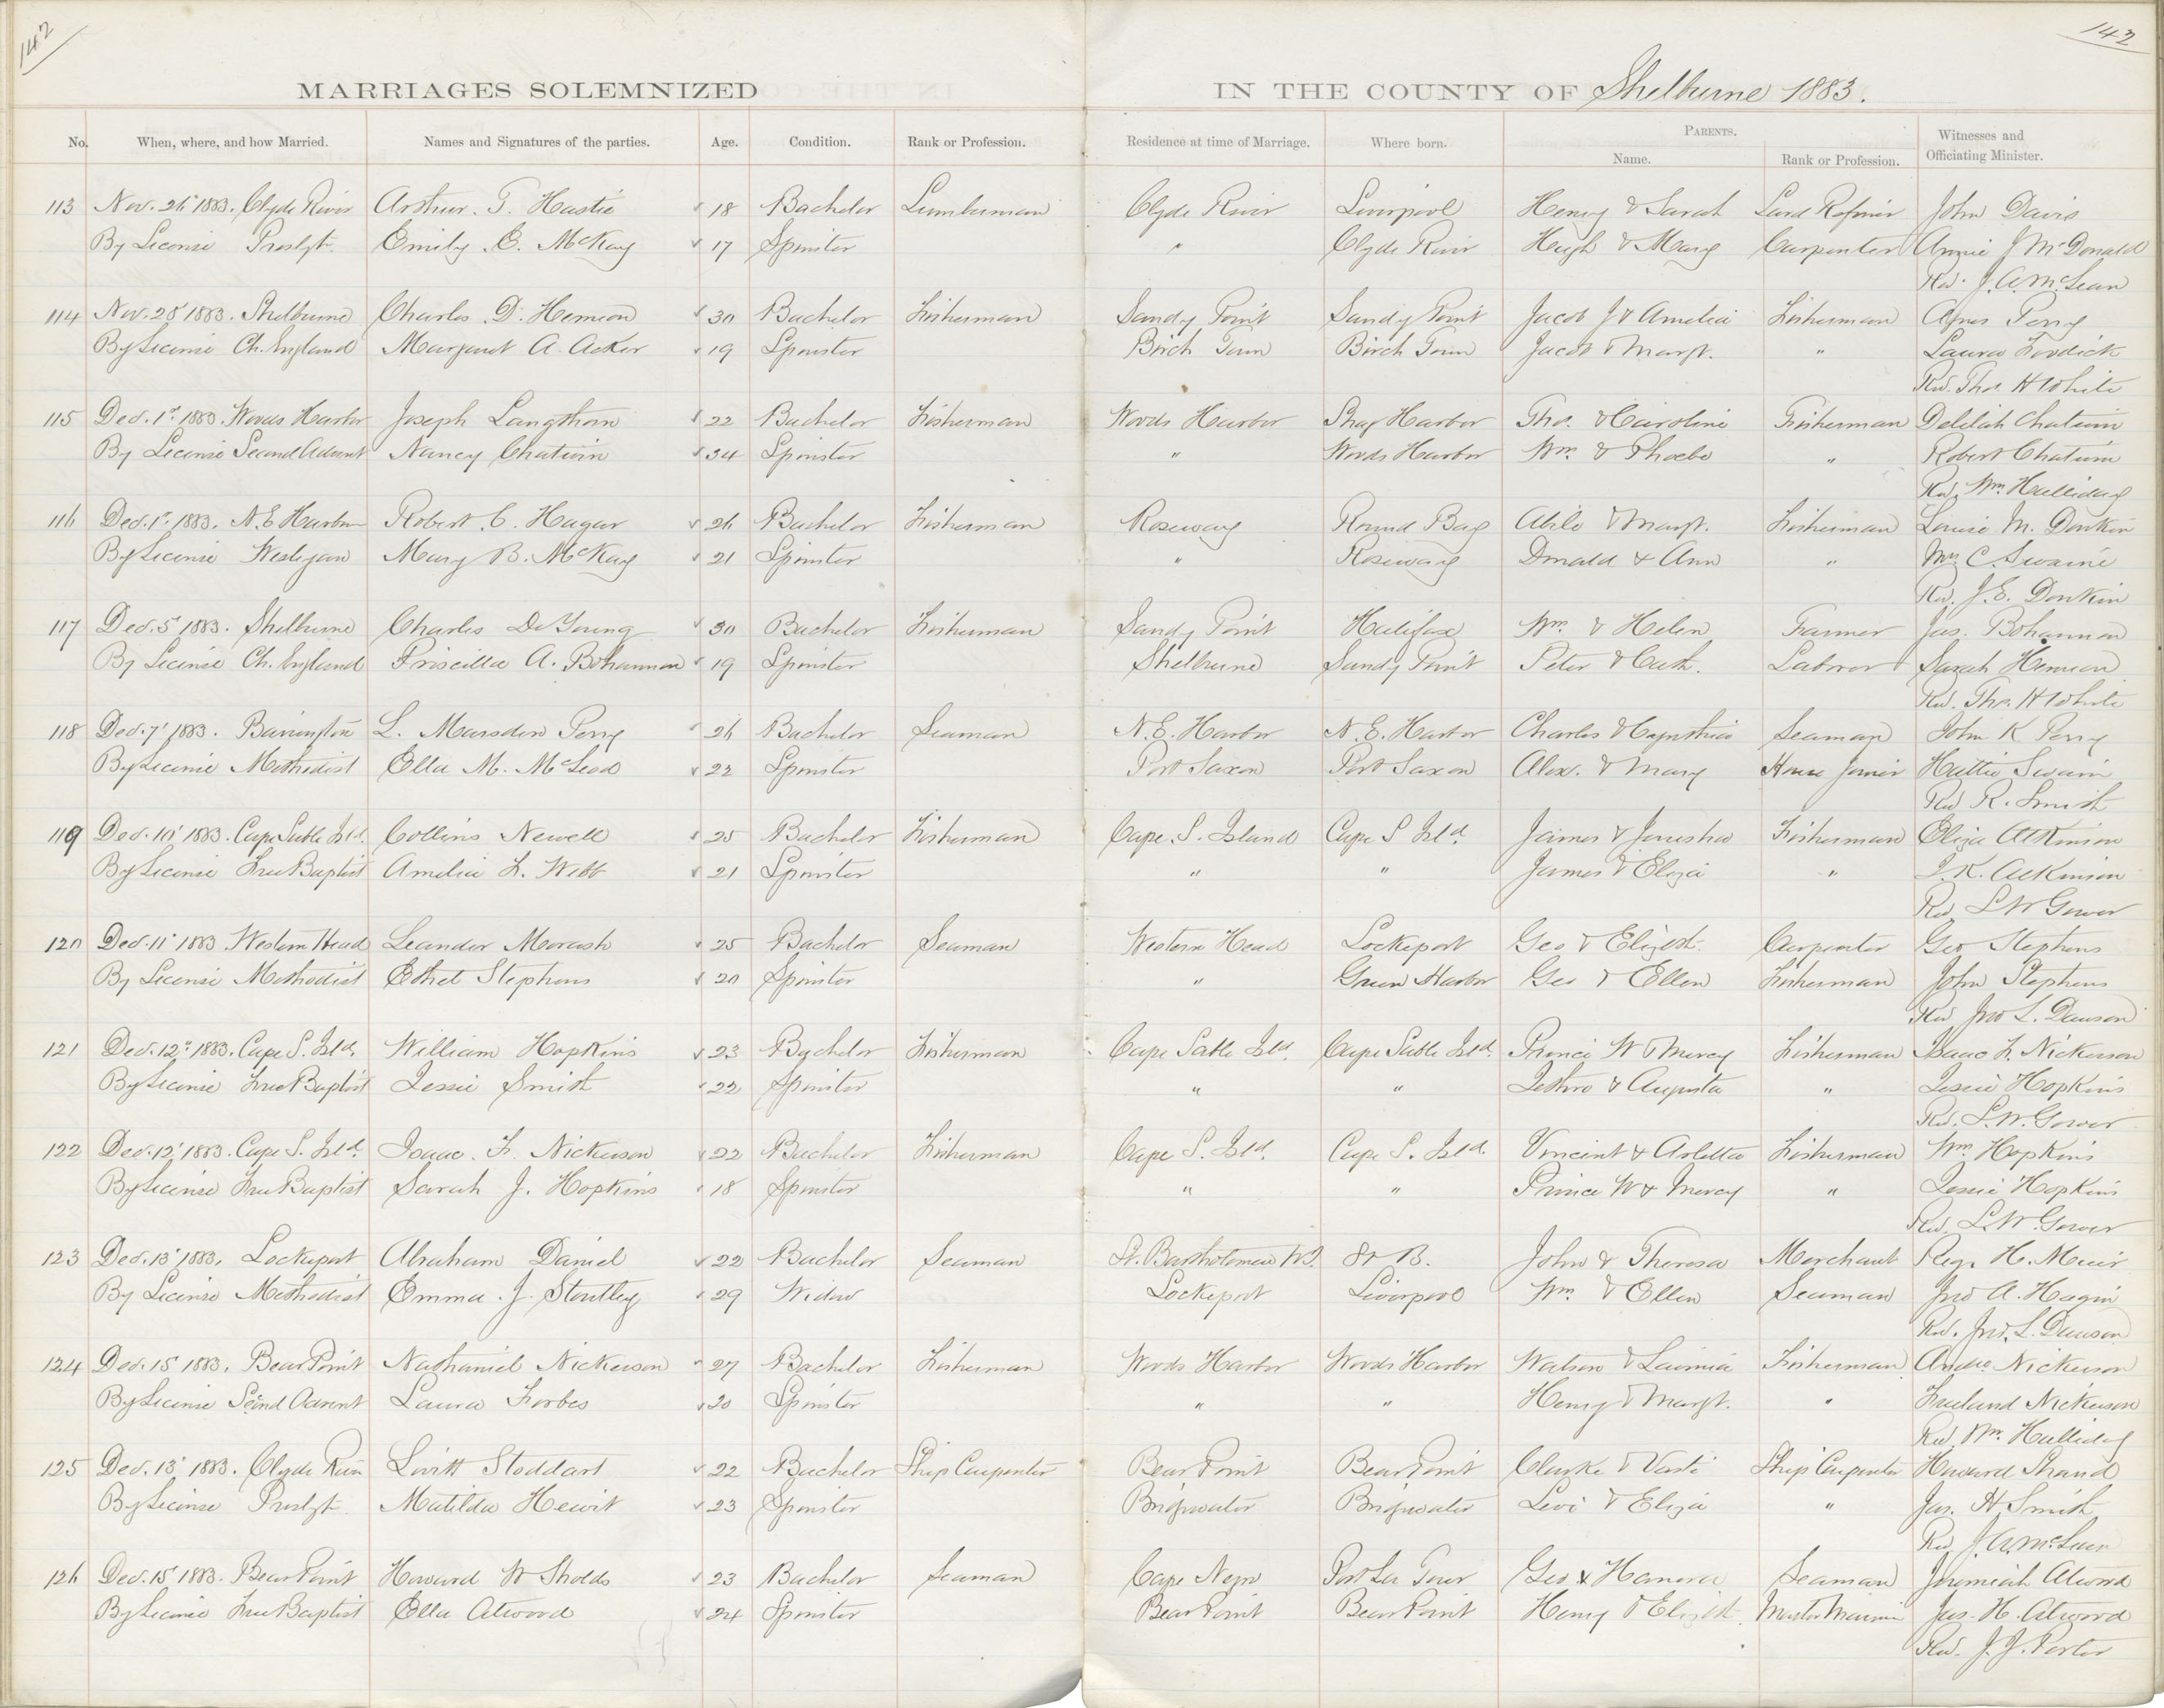 142
142
MARRIAGES SOLEMNIZED IN THE COUNTY OF Shelburne 1883.
No. When, where, and how Married. Names and Signatures of the parties. Age. Condition. Rank or Profession. Residence at time of Marriage. Where born. PARENTS. Name. Rank or Profession. Witnesses and Officiating Minister.
113 Nov. 26 1883. Clyde River Arthur. T. Hastie 18 Bachelor Lumberman Clyde River Liverpool Henry & Sarah Lard Refiner John Davis
By License Presbyt. Emily. E. McKay 17 Spinster " Clyde River Hugh & Mary Carpenter Annie J McDonald
Rev. J. A. McLean
114 Nov. 28 1883. Shelburne Charles D. Hemeon 30 Bachelor Fisherman Sandy Point Sandy Point Jacob J & Amelia Fisherman Agnes Perry
By License Ch. England Margaret A. Acker 19 Spinster Birch Town Birch Town Jacob & Margt. " Laura
Rev. Tho. H White
115 Dec. 1st 1883. Woods Harbor Joseph Langthorn 22 Bachelor Fisherman Woods Harbor Shag Harbor Tho. & Caroline Fisherman Delilah Chatwin
By License Second Advent Nancy Chatwin 34 Spinster " Woods Harbor Wm. & Phoebe " Robert Chatwin
Rev. Wm. Halliday
116 Dec. 1st 1883. N. E Harbor Robert. C. Hagar 26 Bachelor Fisherman Roseway Round Bay & Margt. Fisherman Louise M. Donkin
By License Wesleyan Mary B. McKay 21 Spinster " Roseway Donald & Ann " Mrs C. Swaine
Rev. J. E. Donkin
117 Dec. 5 1883. Shelburne Charles De Young 30 Bachelor Fisherman Sandy Point Halifax Wm. & Helen Farmer Jas. Bohannon
By License Ch. England Priscilla A. Bohannon 19 Spinster Shelburne Sandy Point Peter & Cath. Laborer Sarah Hemeon
Rev. Tho. H White
118 Dec. 7 1883. Barrington L. Marsden Perry 26 Bachelor Seaman N. E. Harbor N. E. Harbor Charles & Cynthia Seaman John K Perry
By License Methodist Ella M. McLeod 22 Spinster Port Saxon Port Saxon Alex. & Mary House Joiner Hattie Swain
Rev R. Smith
119 Dec. 10 1883. Cape Sable Isld. Collins Newell 25 Bachelor Fisherman Cape. S. Island Cape S Isld. James & Jerusha Fisherman Eliza Atkinson
By License Free Baptist Amelia F. Webb 21 Spinster " " James & Eliza " J. K. Atkinson
Rev L W Gower
120 Dec. 11 1883 Western Head Leander Morash 25 Bachelor Seaman Western Head Lockeport Geo & Elizbt. Carpenter Geo Stephens
By License Methodist Ethel Stephens 20 Spinster " Green Harbor Geo & Ellen Fisherman John Stephens
Rev Jno L. Dawson
121 Dec. 12 1883. Cape S. Isld. William Hopkins 23 Bachelor Fisherman Cape Sable Isld. Cape Sable Isld. Prince W & Mercy Fisherman Isaac F. Nickerson
By License Free Baptist Jessie Smith 22 Spinster " " Jethro & Augusta " Jessie Hopkins
Rev. L. W. Gower
122 Dec. 12 1883. Cape S. Isld. Isaac. F. Nickerson 22 Bachelor Fisherman Cape S. Isld. Cape S. Isld. Vincent & Arletta Fisherman Wm. Hopkins
By License Free Baptist Sarah J. Hopkins 18 Spinster " " Prince W & Mercy " Jessie Hopkins
Rev. L. W. Gower
123 Dec. 13 1883. Lockeport Abraham Daniel 22 Bachelor Seaman St. Bartholomew W I. St B. John & Theresa Merchant Regr. H. Muir
By License Methodist Emma. J. Stoutley 29 Widow Lockeport Liverpool Wm. & Ellen Seaman Jno A. Hagin
Rev. Jno. L. Dawson
124 Dec. 15 1883. Bear Point Nathaniel Nickerson 27 Bachelor Fisherman Woods Harbor Woods Harbor Watson & Lavinia Fisherman Nickerson
By License Second Advent Laura Forbes 20 Spinster " " Henry & Margt. " Freeland Nickerson
Rev. Wm. Halliday
125 Dec. 13 1883. Clyde River Levitt Stoddart 22 Bachelor Ship Carpenter Bear Point Bear Point Clarke & Ship Carpenter Howard Shand
By License Presbyt. Matilda Hewit 23 Spinster Bridgewater Bridgewater Levi & Eliza " Jas. H. Smith
Rev. J. A. McLean
126 Dec. 15 1883. Bear Point Howard W Sholds 23 Bachelor Seaman Cape Negro Port La Tour Geo & Hanora Seaman Jeremiah Atwood
By License Free Baptist Ella Atwood 24 Spinster Bear Point Bear Point Henry & Elizbt. Master Mariner Jas. H. Atwood
Rev. J. J. Porter